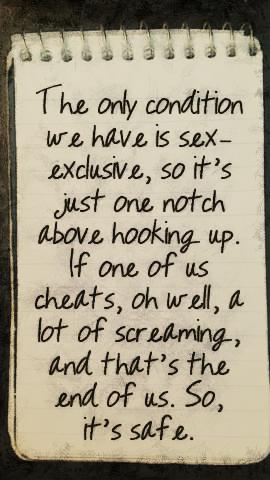 The only condition
we have is sex-
exclusive, so it's
just one notch
above hooking up.
If one of us
cheats, oh well, a
lot of screaming,
and that's the
end of us. So,
it's safe.